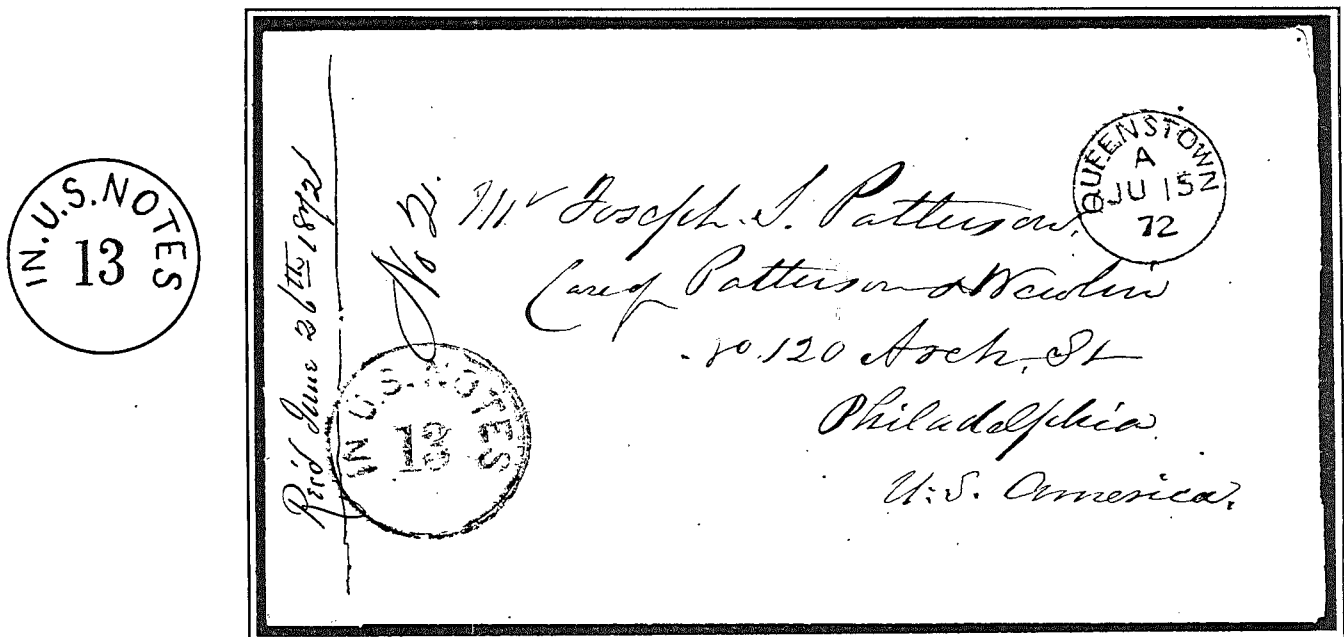 IN. U.S. NOTES
13
Rec'd June 26th 1872
No 2.
IN U.S. NOTES
13
QUEENSTOWN
A
JU 15
72
Mr Joseph. S. Patterson,
Care of Patterson & Newlin
No. 120 Arch, St
Philadelphia
U.S. America.